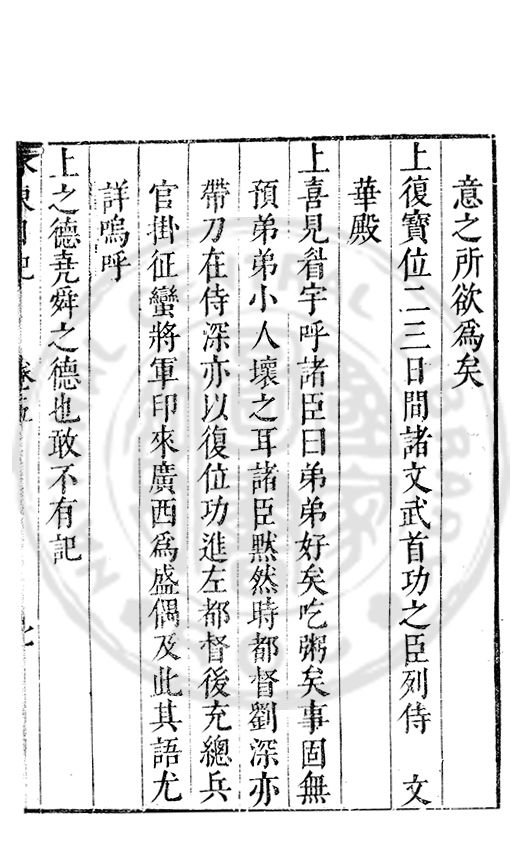 意之所欲爲矣
上復寶位二三日間諸文武首功之臣列侍　文
華殿
上喜見眉宇呼諸臣曰弟弟好矣吃粥矣事固無
預弟弟小人壞之耳諸臣默然時都督劉深亦
帶刀在侍深亦以復位功進左都督後充總兵
官掛征蠻將軍印來廣西爲盛偶及此其語尤
詳嗚呼
上之德堯舜之德也敢不有記